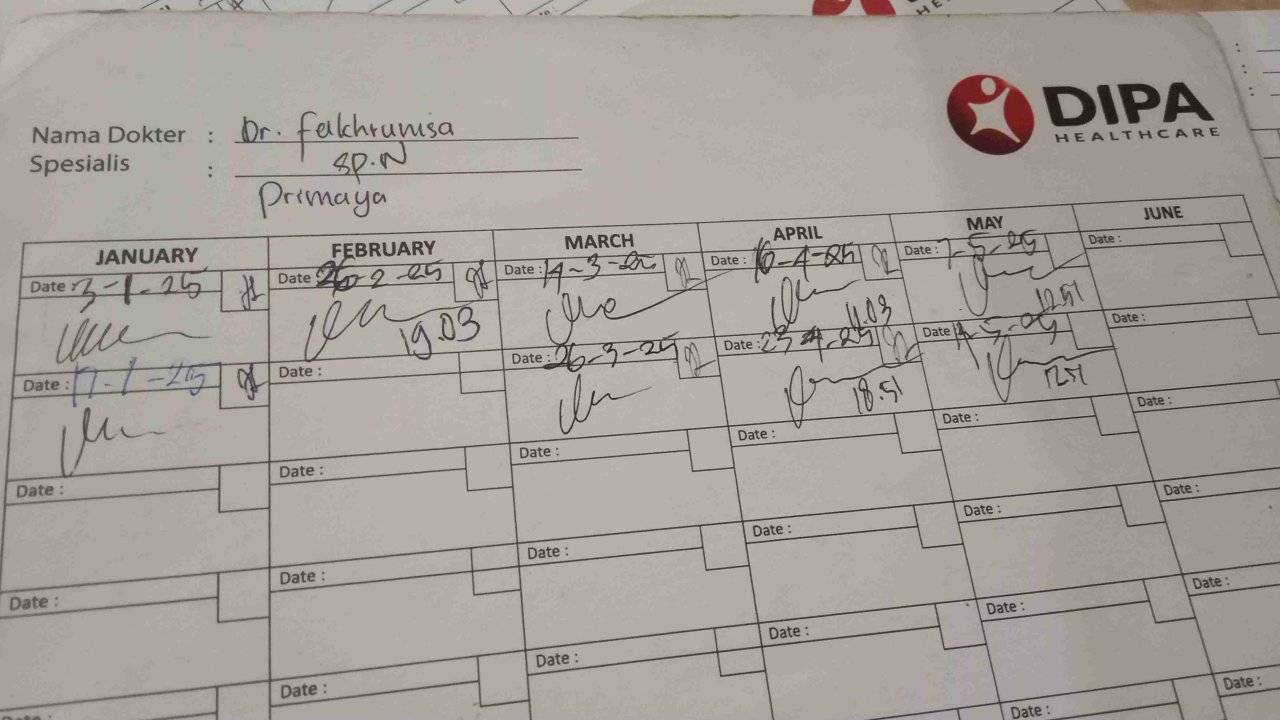 DIPA
HEALTHCARE
Nama Dokter : Dr. Fakhrunisa
Spesialis : Sp.N
Primaya
JANUARY FEBRUARY MARCH APRIL MAY JUNE
Date : 3-1-25 Date : 26-2-25 Date : 14-3-25 Date : 16-4-25 Date : 7-5-25 Date :
19.03 11.03 12.51
Date : 17-1-25 Date : Date : 26-3-25 Date : 23-4-25 Date : 14-5-25 Date :
18.51 1251
Date : Date : Date : Date : Date : Date :
Date : Date : Date : Date : Date : Date :
Date : Date : Date : Date : Date :
Date : Date : Date :